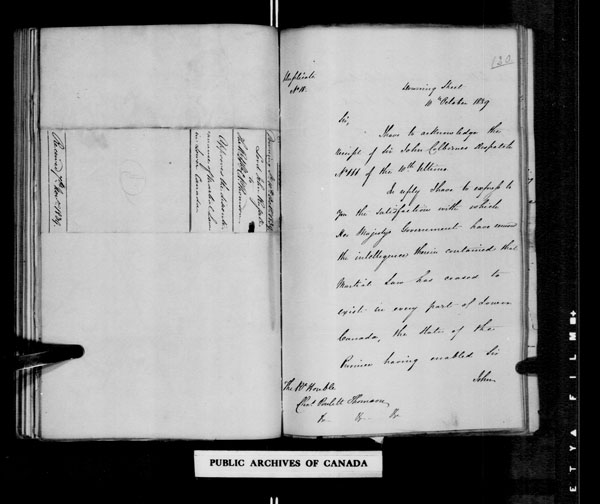 Downing Street
Lord John Russell
to
Approves the discontinuance
of Martial Law
in Lower Canada
Received 7th Nov. 1839
120
Duplicate
No 18.
Downing Street
11th October 1839
Sir,
I have to acknowledge the
receipt of Sir John Colborne's despatch
of the Ultimo
In reply I have to express to
you the satisfaction with which
Her Majesty's Government have received
the intelligence therein contained that
Martial Law has ceased to
exist in every part of Lower
Canada, the state of the
Province having enabled Sir
John
The Rt Honble
Chas Poulett Thomson
&c &c &c
PUBLIC ARCHIVES OF CANADA
ETY FILM